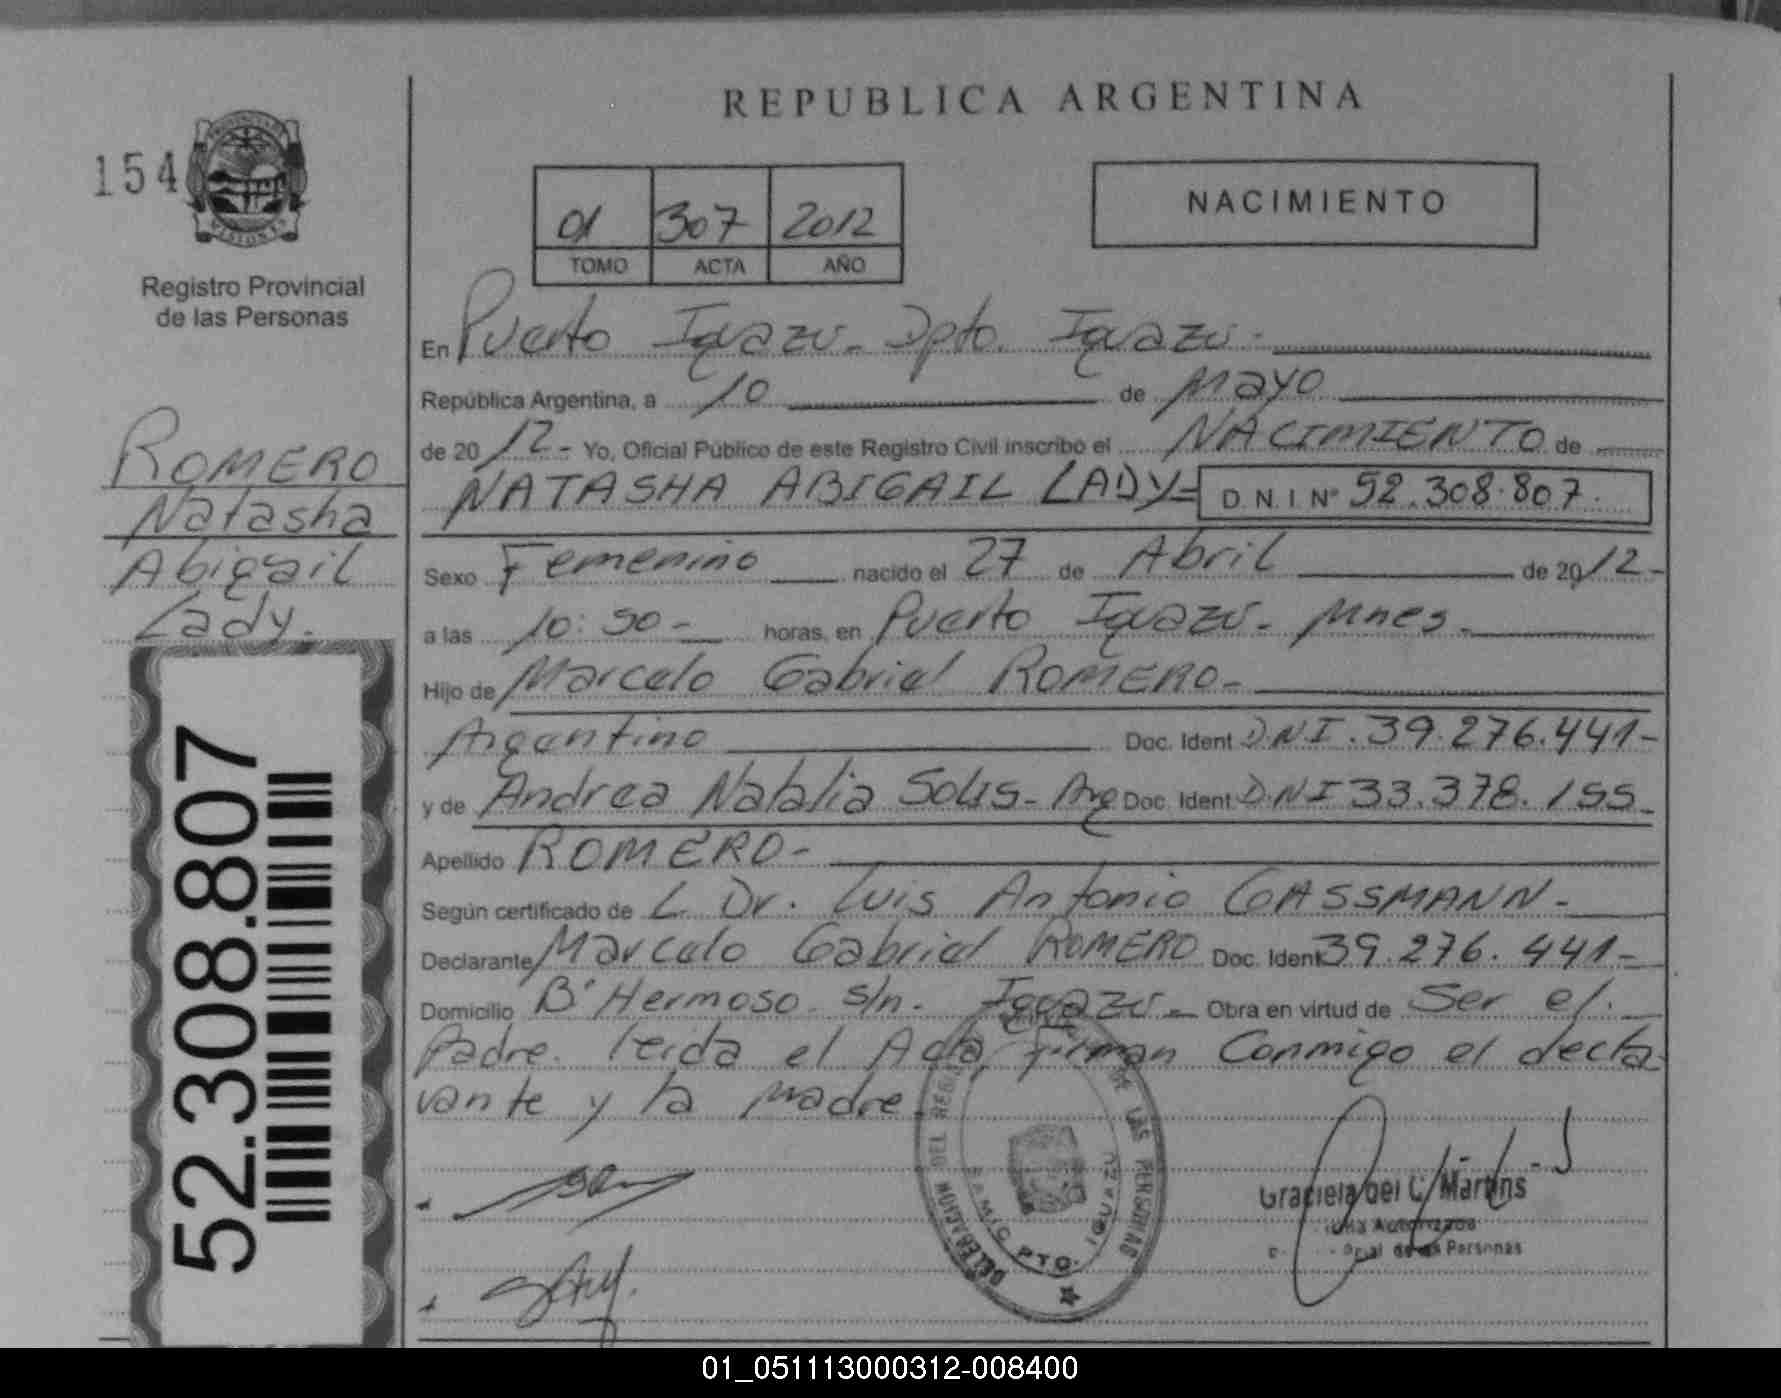 REPUBLICA ARGENTINA
154
PROVINCIA DE MISIONES
Registro Provincial
de las Personas
01 307 2012
TOMO ACTA AÑO
NACIMIENTO
En Puerto Iguazú - Dpto. Iguazú -
República Argentina, a 10 de Mayo
de 2012 - Yo, Oficial Público de este Registro Civil inscribo el NACIMIENTO de
NATASHA ABIGAIL LADY = D.N.I Nº 52.308.807.
Sexo Femenino nacido el 27 de Abril de 2012 -
a las 10:50 - horas, en Puerto Iguazú - Mnes -
Hijo de Marcelo Gabriel ROMERO -
Argentino Doc. Ident DNI. 39.276.441 -
y de Andrea Natalia Solis - Arg Doc. Ident DNI 33.378.155 -
Apellido ROMERO -
Según certificado de L. Dr. Luis Antonio GASSMANN -
Declarante Marcelo Gabriel ROMERO Doc. Ident 39.276.441 -
Domicilio Bº Hermoso s/n - Iguazú - Obra en virtud de Ser el
Padre. leida el Acta, firman Conmigo el decla
rante y la madre
ROMERO
Natasha
Abigail
Lady.
52.308.807
DELEGACION DEL REG DE LAS PERSONAS
PTO. IGUAZU
Graciela del C. Martins
Autorizada
de las Personas
01_051113000312-008400